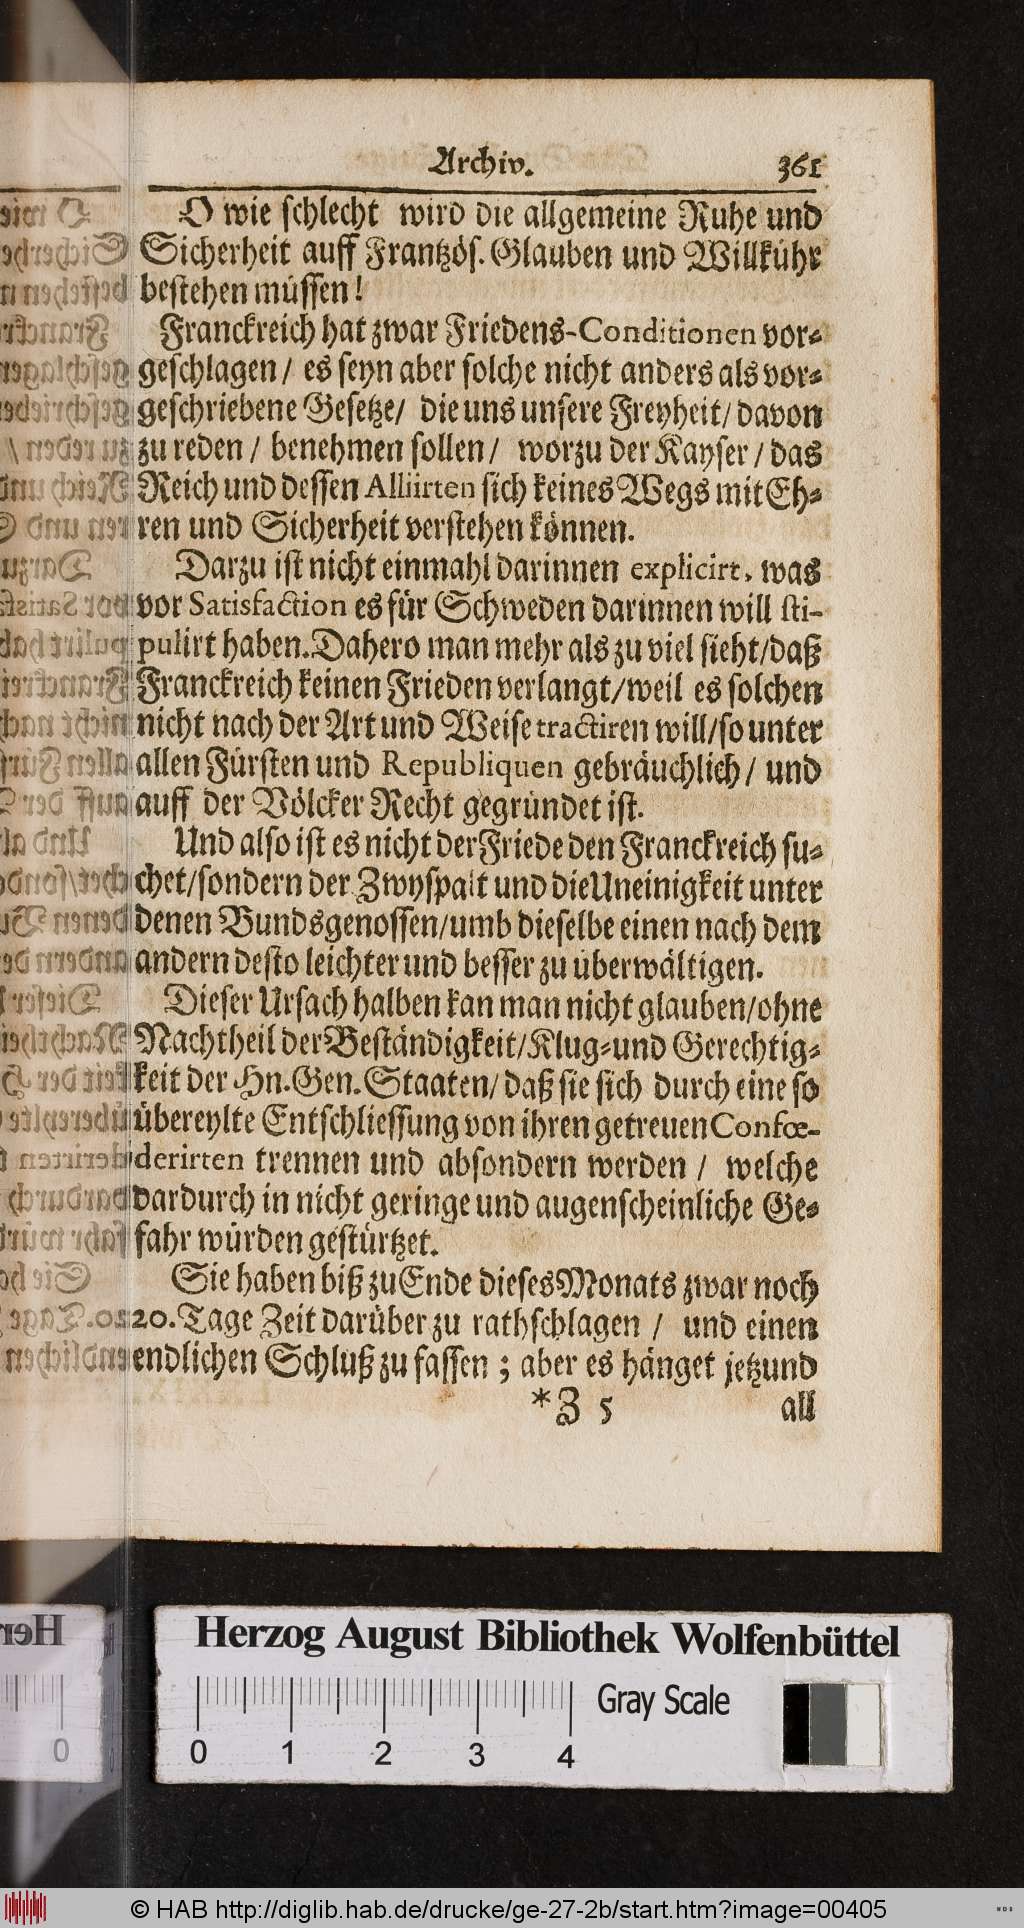 Archiv. 361
O wie schlecht wird die allgemeine Ruhe und
Sicherheit auff Frantzös. Glauben und Willkühr
bestehen müssen!
Franckreich hat zwar Friedens-Conditionen vor-
geschlagen / es seyn aber solche nicht anders als vor-
geschriebene Gesetze / die uns unsere Freyheit / davon
zu reden / benehmen sollen / worzu der Kayser / das
Reich und dessen Alliirten sich keines Wegs mit Eh-
ren und Sicherheit verstehen können.
Darzu ist nicht einmahl darinnen explicirt, was
vor Satisfaction es für Schweden darinnen will sti-
pulirt haben. Dahero man mehr als zu viel sieht / daß
Franckreich keinen Frieden verlangt / weil es solchen
nicht nach der Art und Weise tractiren will / so unter
allen Fürsten und Republiquen gebräuchlich / und
auff der Völcker Recht gegründet ist.
Und also ist es nicht der Friede den Franckreich su-
chet / sondern der Zwyspalt und die Uneinigkeit unter
denen Bundsgenossen / umb dieselbe einen nach dem
andern desto leichter und besser zu überwältigen.
Dieser Ursach halben kan man nicht glauben / ohne
Nachtheil der Beständigkeit / Klug- und Gerechtig-
keit der Hn. Gen. Staaten / daß sie sich durch eine so
übereylte Entschliessung von ihren getreuen Confœ-
derirten trennen und absondern werden / welche
dardurch in nicht geringe und augenscheinliche Ge-
fahr würden gestürtzet.
Sie haben biß zu Ende dieses Monats zwar noch
20. Tage Zeit darüber zu rathschlagen / und einen
endlichen Schluß zu fassen ; aber es hänget jetzund
*Z 5 all
Herzog August Bibliothek Wolfenbüttel
0 1 2 3 4 Gray Scale
© HAB http://diglib.hab.de/drucke/ge-27-2b/start.htm?image=00405